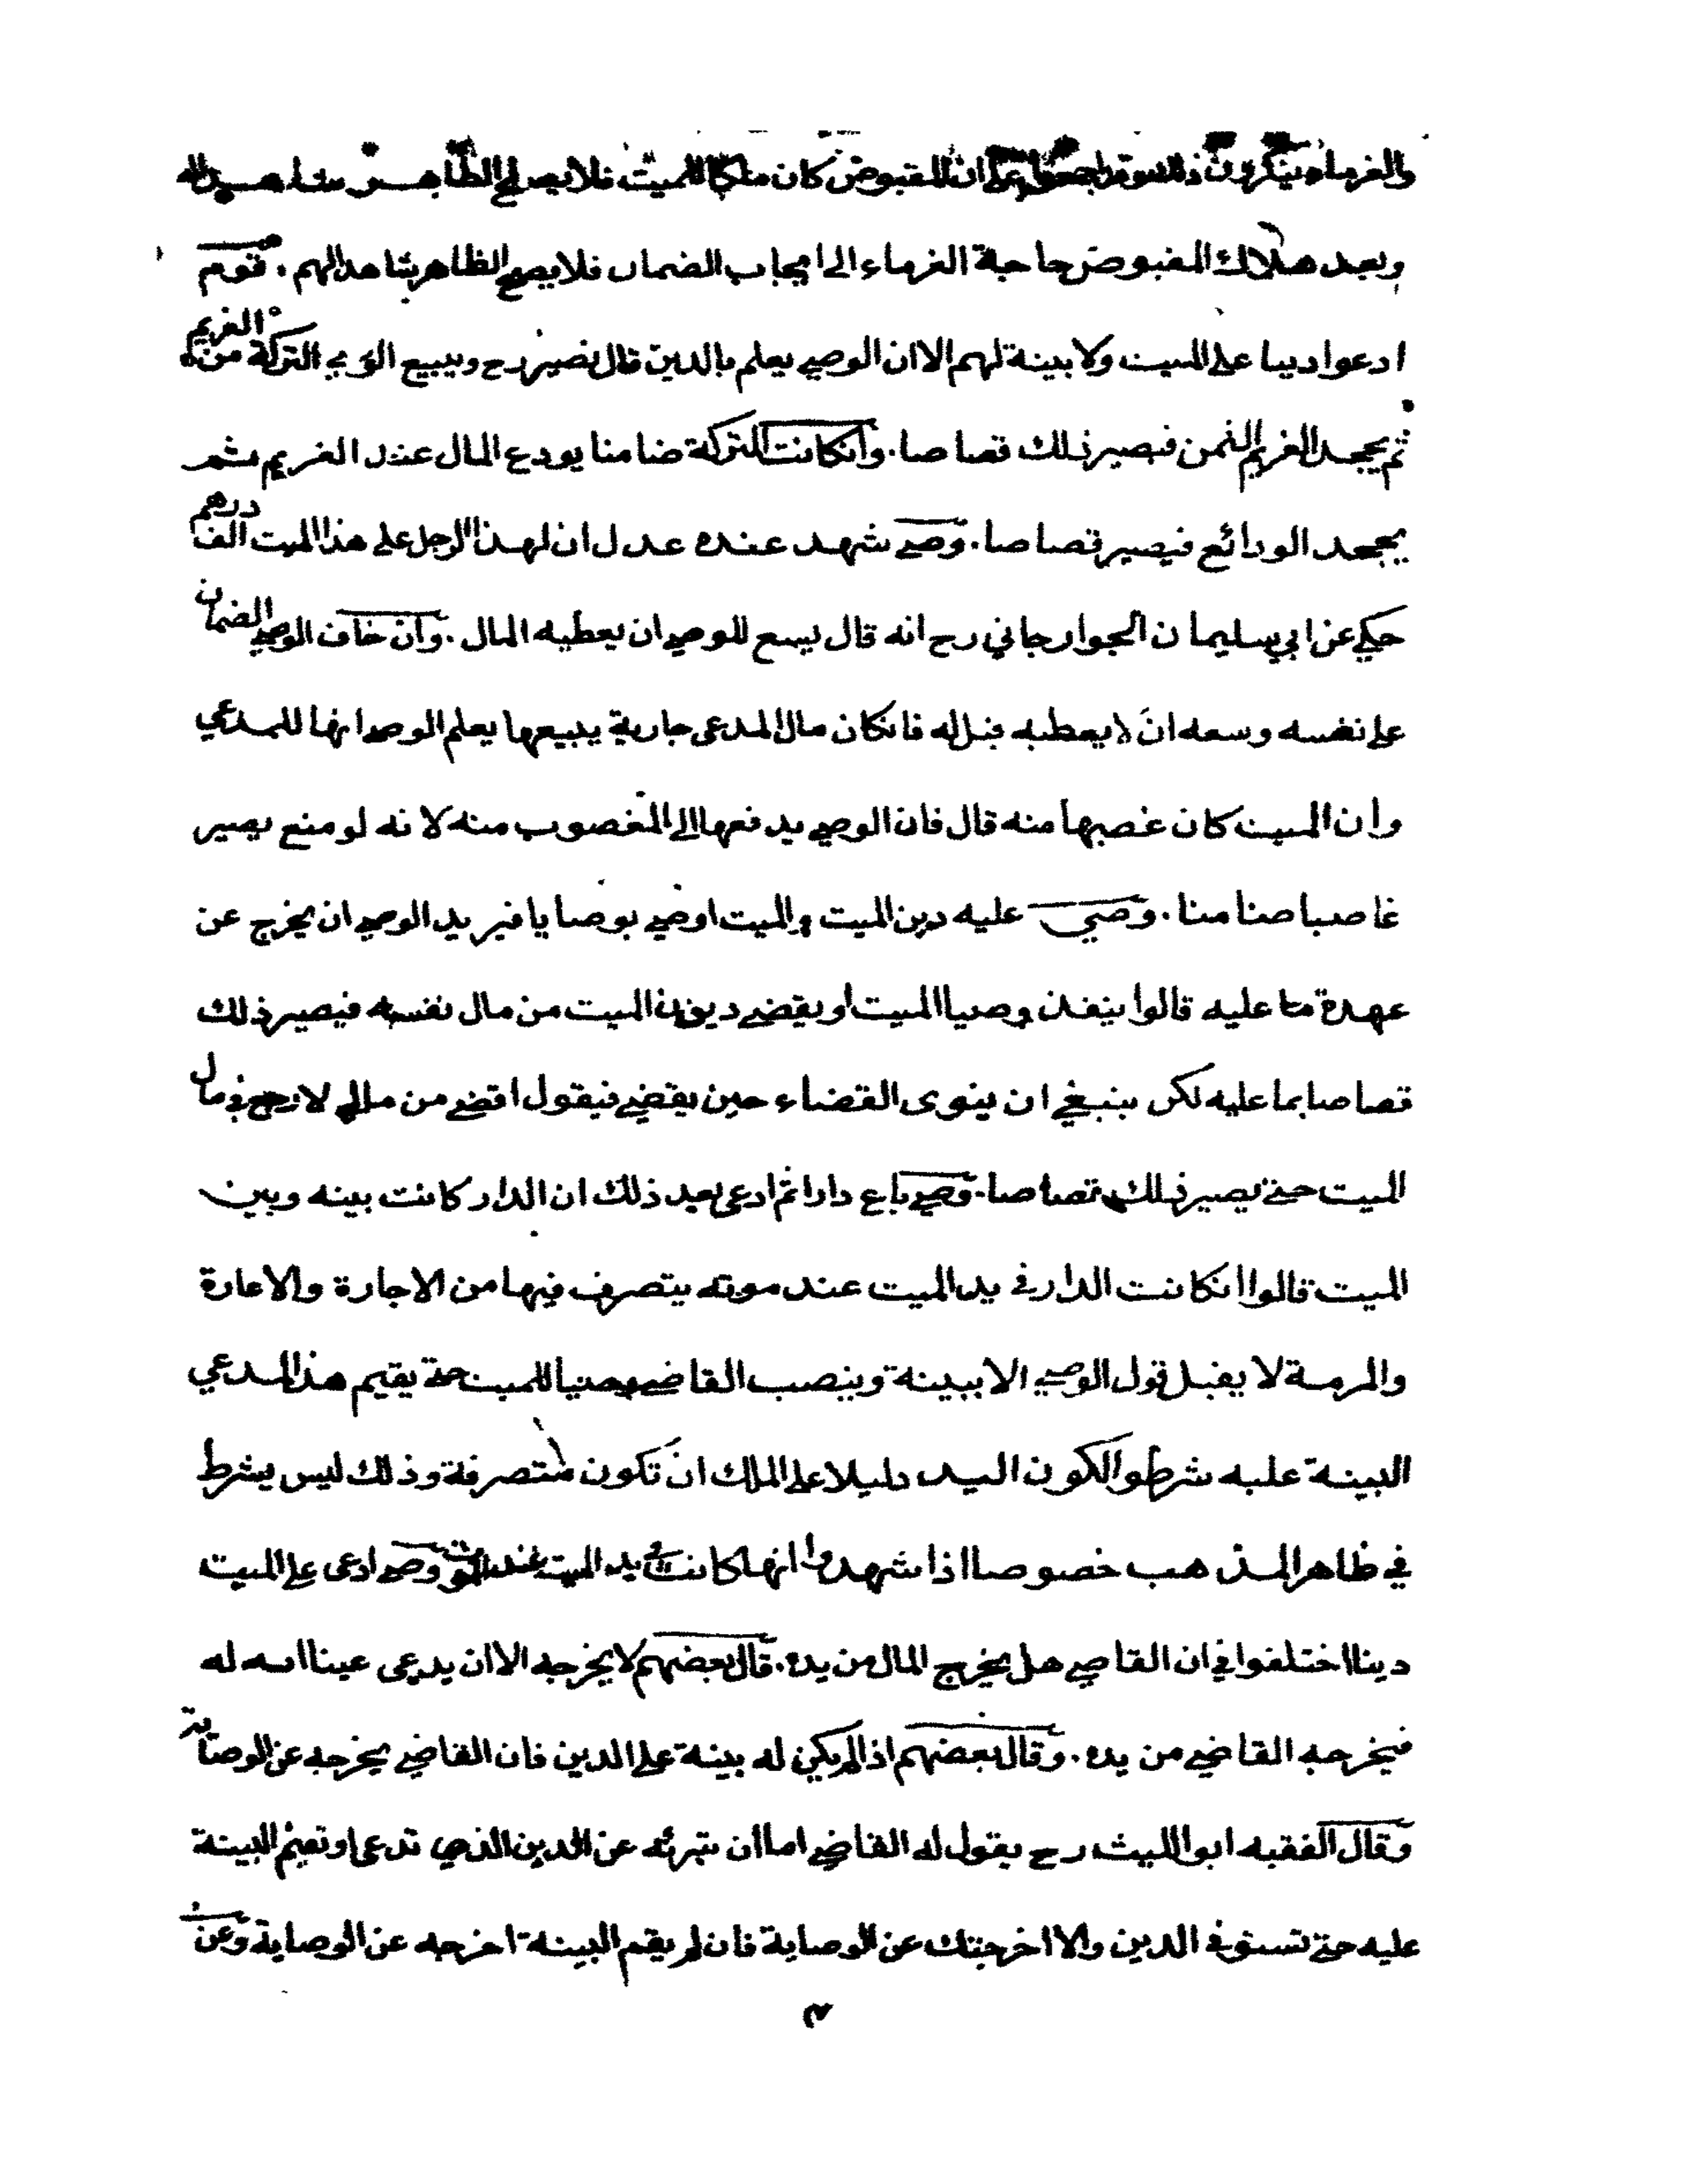 والغرماء ينكرون ذلك وقد اجمعوا على ان المقبوض كان ملكا للميت فلا يصلح الظاهر شاهدا له
وبعد هلاك المقبوض حاجة الغرماء الى ايجاب الضمان فلا يصلح الظاهر شاهدا لهم . قوم
ادعوا دينا على الميت ولا بينة لهم الا ان الوصي يعلم بالدين قال نصير رح ويبيع الوصي التركة من الغريم
ثم يجحد الغريم الثمن فيصير ذلك قصاصا . وان كانت التركة ضامنا يودع المال عند الغريم ثم
يجحد الودائع فيصير قصاصا . وصي شهد عنده عدل ان لهذا الرجل على هذا الميت الف درهم
حكي عن ابي سليمان الجوارجاني رح انه قال يسع للوصي ان يعطيه المال . وان خاف الوصي الضمان
على نفسه وسعه ان لا يعطيه قيل له فان كان مال المدعى جارية يبيعها يعلم الوصي انها للمدعي
وان الميت كان غصبها منه قال فان الوصي يدفعها الى المغصوب منه لانه لو منع يصير
غاصبا ضامنا . وصي عليه دين الميت والميت اوصى بوصايا فيريد الوصي ان يخرج عن
عهدة ما عليه قالوا ينفذ وصايا الميت او يقضي ديون الميت من مال نفسه فيصير ذلك
قصاصا بما عليه لكن ينبغي ان ينوى القضاء حين يقضي فيقول اقضي من مالي لارجع في مال
الميت حتى يصير ذلك قصاصا . وصي باع دارا ثم ادعى بعد ذلك ان الدار كانت بينه وبين
الميت قالوا ان كانت الدار في يد الميت عند موته يتصرف فيها من الاجارة والاعارة
والمرمة لا يقبل قول الوصي الا ببينة وينصب القاضي وصيا للميت حتى يقيم هذا المدعي
البينة عليه شرطوا لكون اليد دليلا على الملك ان تكون متصرفة وذلك ليس بشرط
في ظاهر المذهب خصوصا اذا شهدوا انها كانت في يد الميت عند الموت وصي ادعى على الميت
دينا اختلفوا في ان القاضي هل يخرج المال من يده . قال بعضهم لا يخرجه الا ان يدعى عينا انه له
فيخرجه القاضي من يده . وقال بعضهم اذا لم يكن له بينة على الدين فان القاضي يخرجه عن الوصاية
وقال الفقيه ابو الليث رح يقول له القاضي اما ان تبرئه عن الدين الذي تدعى او تقيم البينة
عليه حتى تستوفى الدين والا اخرجتك عن الوصاية فان لم يقم البينة اخرجه عن الوصاية وعن